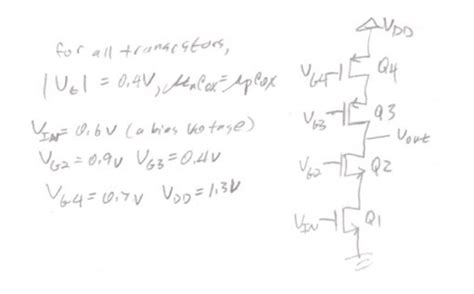 for all transistors,
|Vt| = 0.4V, μnCox = μpCox
VIN = 0.6V (a bias voltage)
VG2 = 0.9V VG3 = 0.4V
VG4 = 0.7V VDD = 1.3V
VDD
VG4 Q4
VG3 Q3
Vout
VG2 Q2
VIN Q1